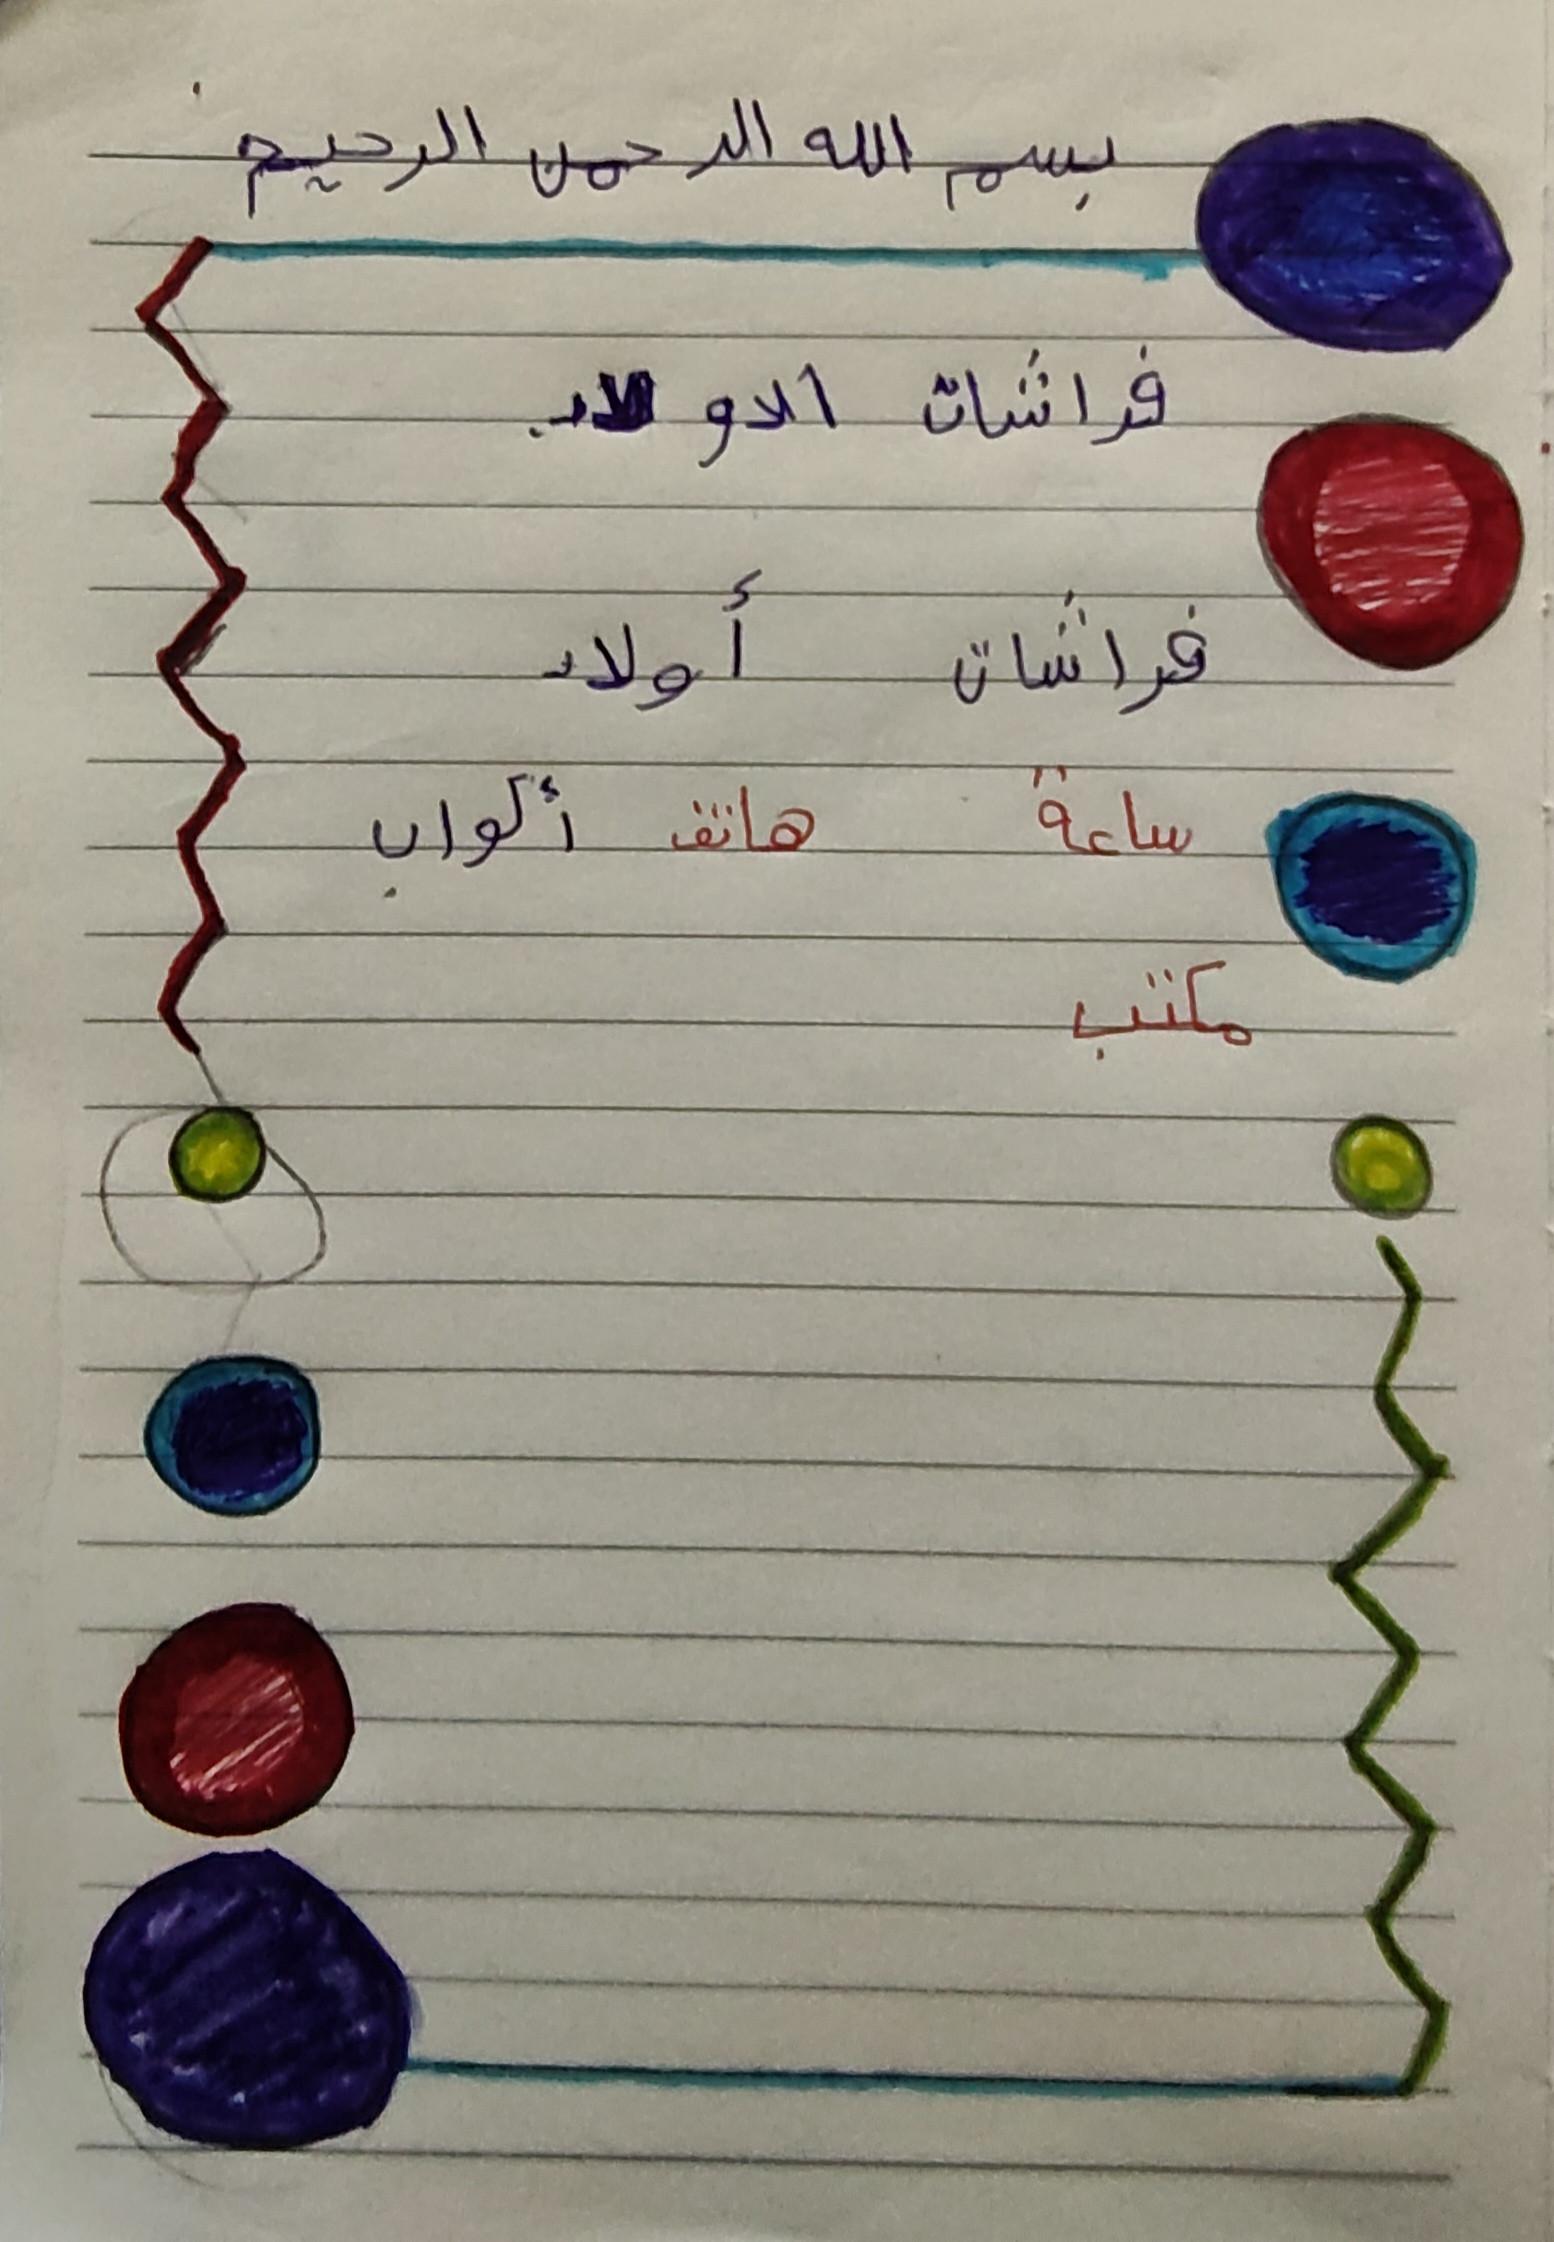 بسم الله الرحمن الرحيم
فراشات الاولاد
فراشات أولاد
ساعة هاتف أكواب
مكتب